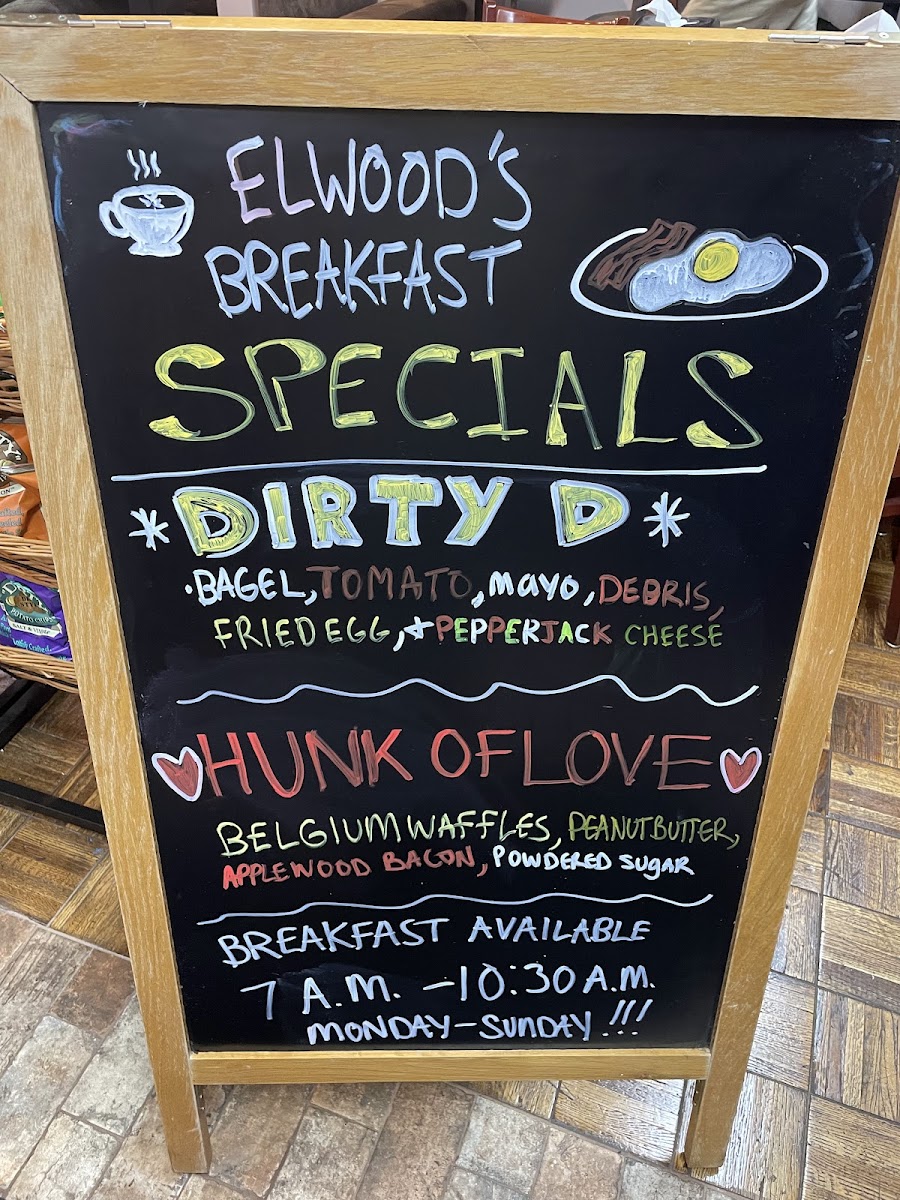 ELWOOD'S
BREAKFAST
SPECIALS
* DIRTY D *
·BAGEL, TOMATO, MAYO, DEBRIS,
FRIED EGG, + PEPPERJACK CHEESE
HUNK OF LOVE
BELGIUM WAFFLES, PEANUT BUTTER,
APPLEWOOD BACON, POWDERED SUGAR
BREAKFAST AVAILABLE
7 A.M. - 10:30 A.M.
MONDAY - SUNDAY!!!
POTATO CHIPS